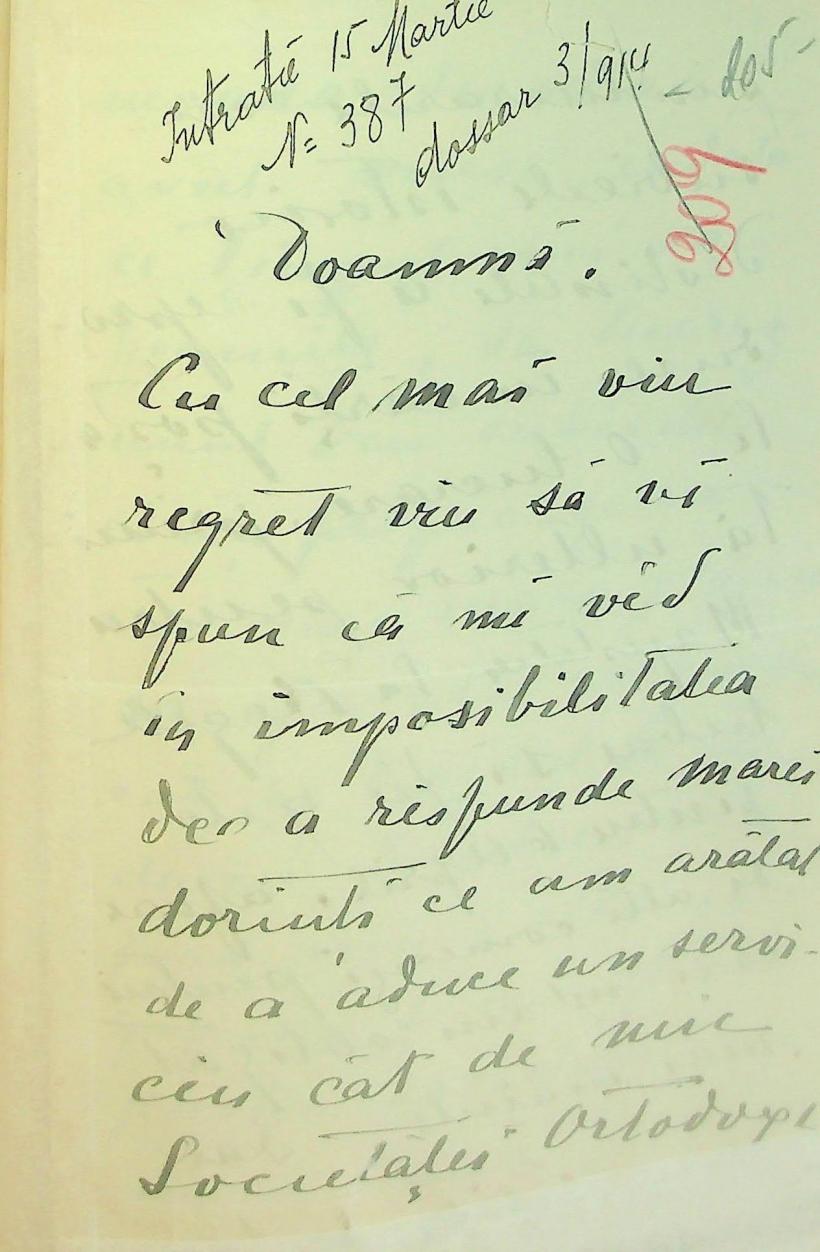 Intrată 15 Martie
N= 387
dossar 3/914
209
Doamnă.
Cu cel mai viu
regret viu să vĕ
spun că mĕ vĕd
în imposibilitatea
de a rĕspunde marei
dorinți ce am arătat
de a aduce un servi-
ciu cât de mic
Societăței Ortodoxe